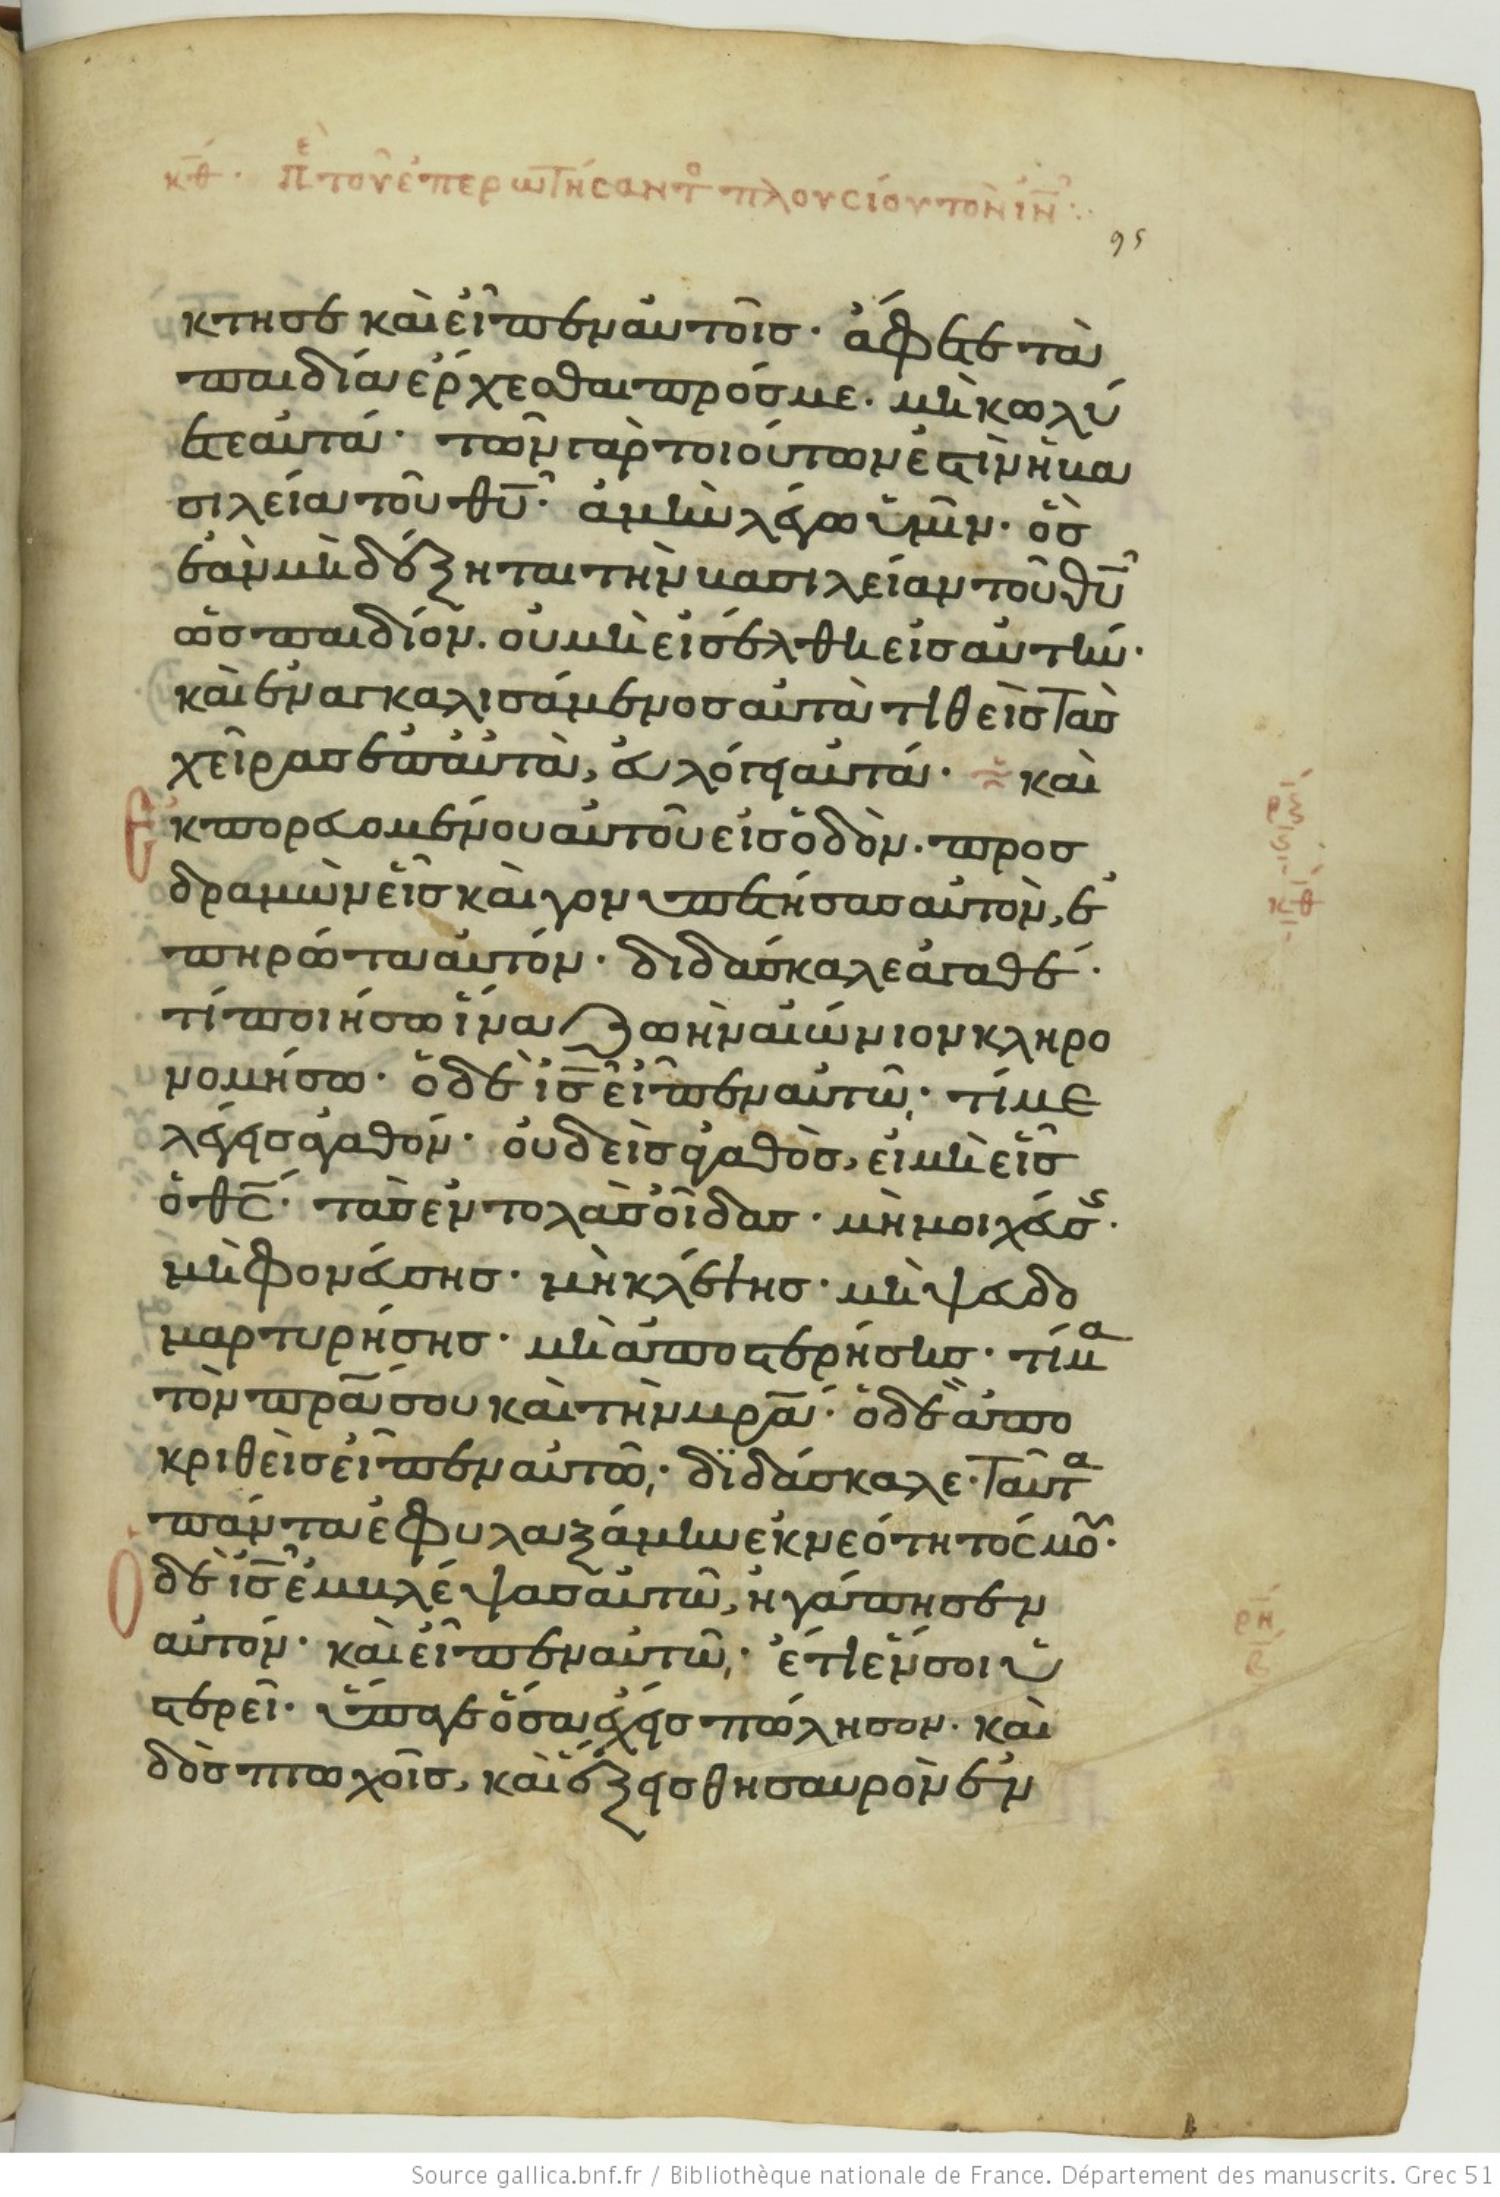 κθ· πε τοῦ ἐπερωτήσαντο πλουσίου τὸν ιν
95
κτησε καὶ εἶπεν αὐτοῖς· ἄφετε τὰ
παιδία ἔρχεσθαι πρός με· μὴ κωλύ
ετε αὐτά· τῶν γὰρ τοιούτων ἐστὶν ἡ βα
σιλεία τοῦ θυ· ἀμὴν λέγω ὑμῖν· ὃς
ἐὰν μὴ δέξηται τὴν βασιλείαν τοῦ θυ
ὡς παιδίον. οὐ μὴ εἰσέλθη εἰς αὐτήν·
καὶ ἐναγκαλισάμενος αὐτὰ τιθεὶς τὰς
χεῖρας ἐπ' αὐτὰ, εὐλόγει αὐτά· καὶ
ἐκπορευομένου αὐτοῦ εἰς ὁδὸν· προσ
δραμὼν εἷς καὶ γονυπετήσας αὐτὸν, ἐ
πηρώτα αὐτόν· διδάσκαλε ἀγαθέ·
τί ποιήσω ἵνα ζωὴν αἰώνιον κληρο
νομήσω· ὁ δὲ ις εἶπεν αὐτῷ· τί με
λέγεις ἀγαθόν· οὐδεὶς ἀγαθὸς, εἰ μὴ εἷς
ὁ θς· τὰς ἐντολὰς οἶδας· μὴ μοιχεύσς·
μὴ φονεύσης· μὴ κλέψης· μὴ ψευδο
μαρτυρήσης· μὴ ἀποστερήσης· τίμα
τὸν πρα σου καὶ τὴν μρα· ὁ δὲ ἀπο
κριθεὶς εἶπεν αὐτῷ· διδάσκαλε· ταῦτα
πάντα ἐφυλαξάμην ἐκ νεότητός μου·
Ὁ δὲ ις ἐμβλέψας αὐτῷ, ἠγάπησεν
αὐτόν· καὶ εἶπεν αὐτῷ· ἔτι ἕν σοι ὑ
στερεῖ· ὕπαγε ὅσα ἔχεις πώλησον· καὶ
δὸς πτωχοῖς, καὶ ἕξεις θησαυρὸν ἐν
κθ
ρη
β
Source gallica.bnf.fr / Bibliothèque nationale de France. Département des manuscrits. Grec 51